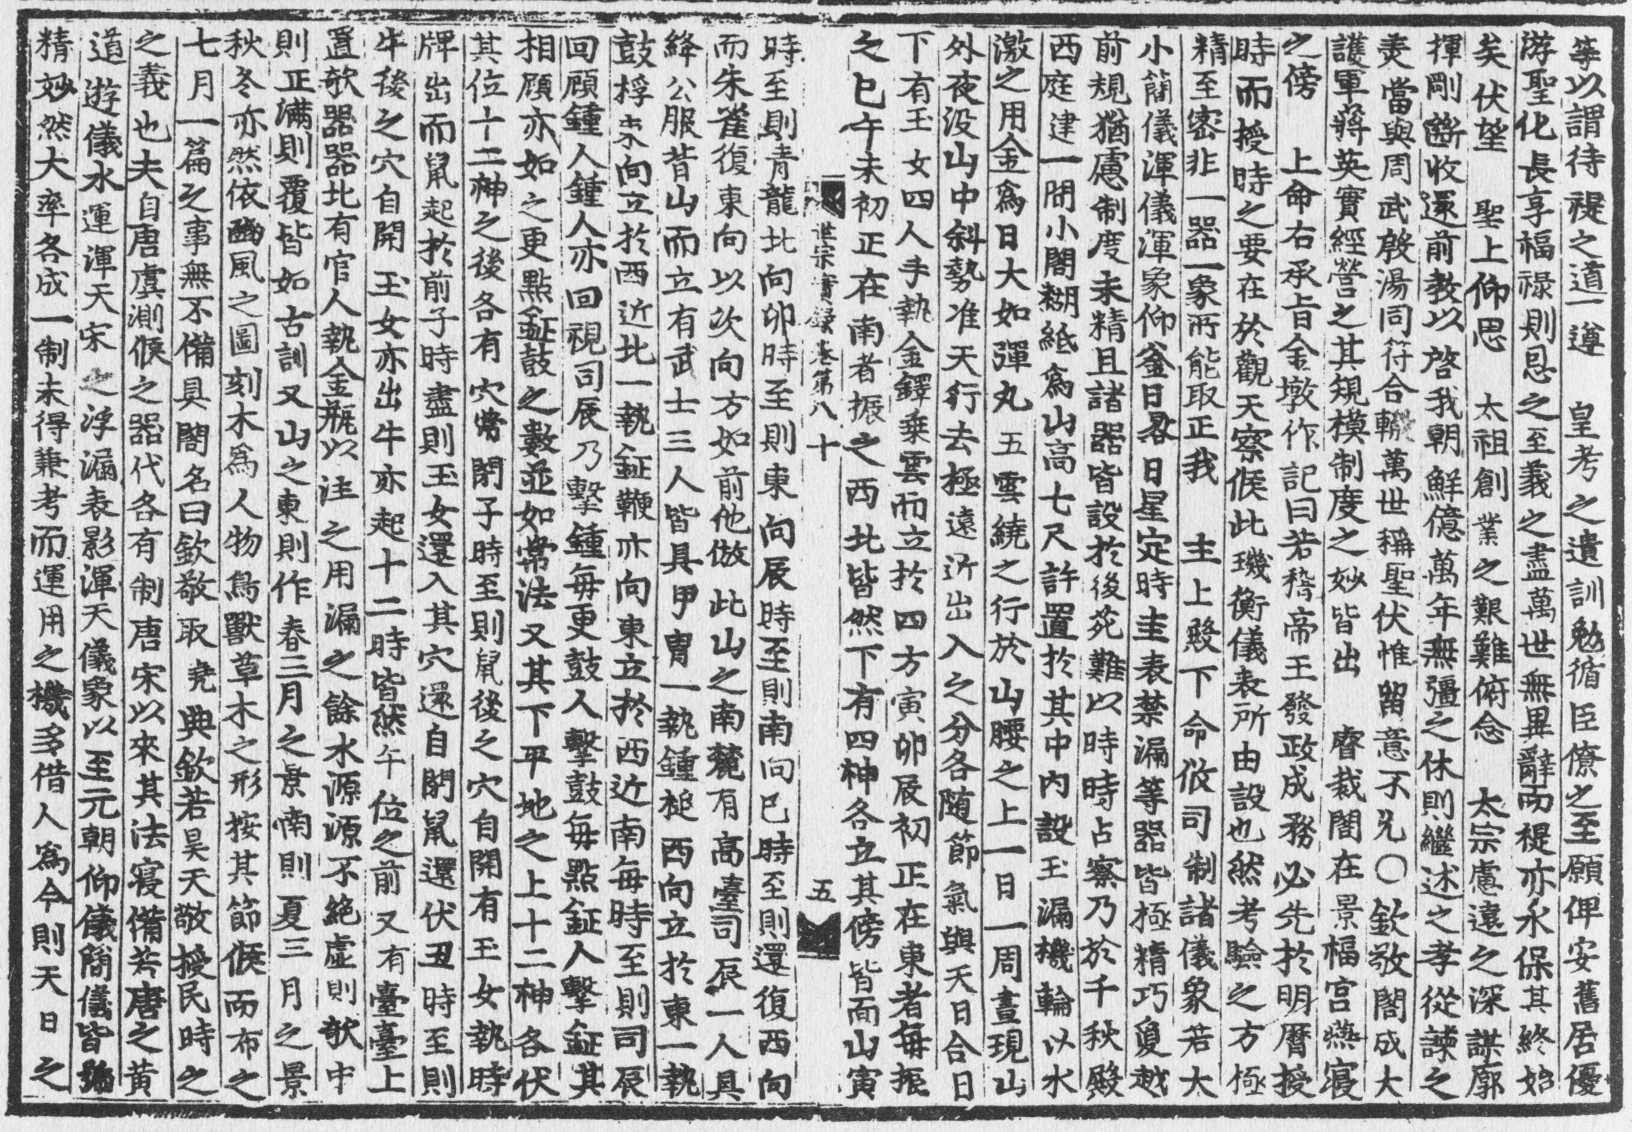 等以謂待禔之道一遵 皇考之遺訓勉循臣僚之至願俾安舊居優
游聖化長享福祿則恩之至義之盡萬世無異辭而禔亦永保其終始
矣伏望 聖上仰思 太祖創業之艱難俯念 太宗慮遠之深謀廓
揮剛斷收還前教以啓我朝鮮億萬年無彊之休則繼述之孝從諫之
美當與周武殷湯同符合轍萬世稱聖伏惟留意不允○欽敬閣成大
護軍蔣英實經營之其規模制度之妙皆出 睿裁閣在景福宮燕寢
之傍 上命右承旨金墩作記曰若稽帝王發政成務必先於明曆授
時而授時之要在於觀天察候此璣衡儀表所由設也然考驗之方極
精至密非一器一象所能取正我 主上殿下命攸司制諸儀象若大
小簡儀渾儀渾象仰釜日晷日星定時圭表禁漏等器皆極精巧夐越
前規猶慮制度未精且諸器皆設於後苑難以時時占察乃於千秋殿
西庭建一間小閣糊紙爲山高七尺許置於其中內設玉漏機輪以水
激之用金爲日大如彈丸五雲繞之行於山腰之上一日一周晝現山
外夜沒山中斜勢准天行去極遠近出入之分各隨節氣與天日合日
下有玉女四人手執金鐸乘雲而立於四方寅卯辰初正在東者每振
之巳午未初正在南者振之西北皆然下有四神各立其傍皆面山寅
世宗實錄卷第八十 五
時至則靑龍北向卯時至則東向辰時至則南向巳時至則還復西向
而朱雀復東向以次向方如前他倣此山之南麓有高臺司辰一人具
絳公服背山而立有武士三人皆具甲冑一執鍾槌西向立於東一執
鼓桴東向立於西近北一執鉦鞭亦向東立於西近南每時至則司辰
回顧鍾人鍾人亦回視司辰乃擊鍾每更鼓人擊鼓每點鉦人擊鉦其
相顧亦如之更點鉦鼓之數並如常法又其下平地之上十二神各伏
其位十二神之後各有穴常閉子時至則鼠後之穴自開有玉女執時
牌出而鼠起於前子時盡則玉女還入其穴還自閉鼠還伏丑時至則
牛後之穴自開玉女亦出牛亦起十二時皆然午位之前又有臺臺上
置欹器器北有官人執金甁以注之用漏之餘水源源不絶虛則欹中
則正滿則覆皆如古訓又山之東則作春三月之景南則夏三月之景
秋冬亦然依豳風之圖刻木爲人物鳥獸草木之形按其節候而布之
七月一篇之事無不備具閣名曰欽敬取堯典欽若昊天敬授民時之
之義也夫自唐虞測候之器代各有制唐宋以來其法寖備若唐之黃
道游儀水運渾天宋之浮漏表影渾天儀象以至元朝仰儀簡儀皆號
精妙然大率各成一制未得兼考而運用之機多借人爲今則天日之